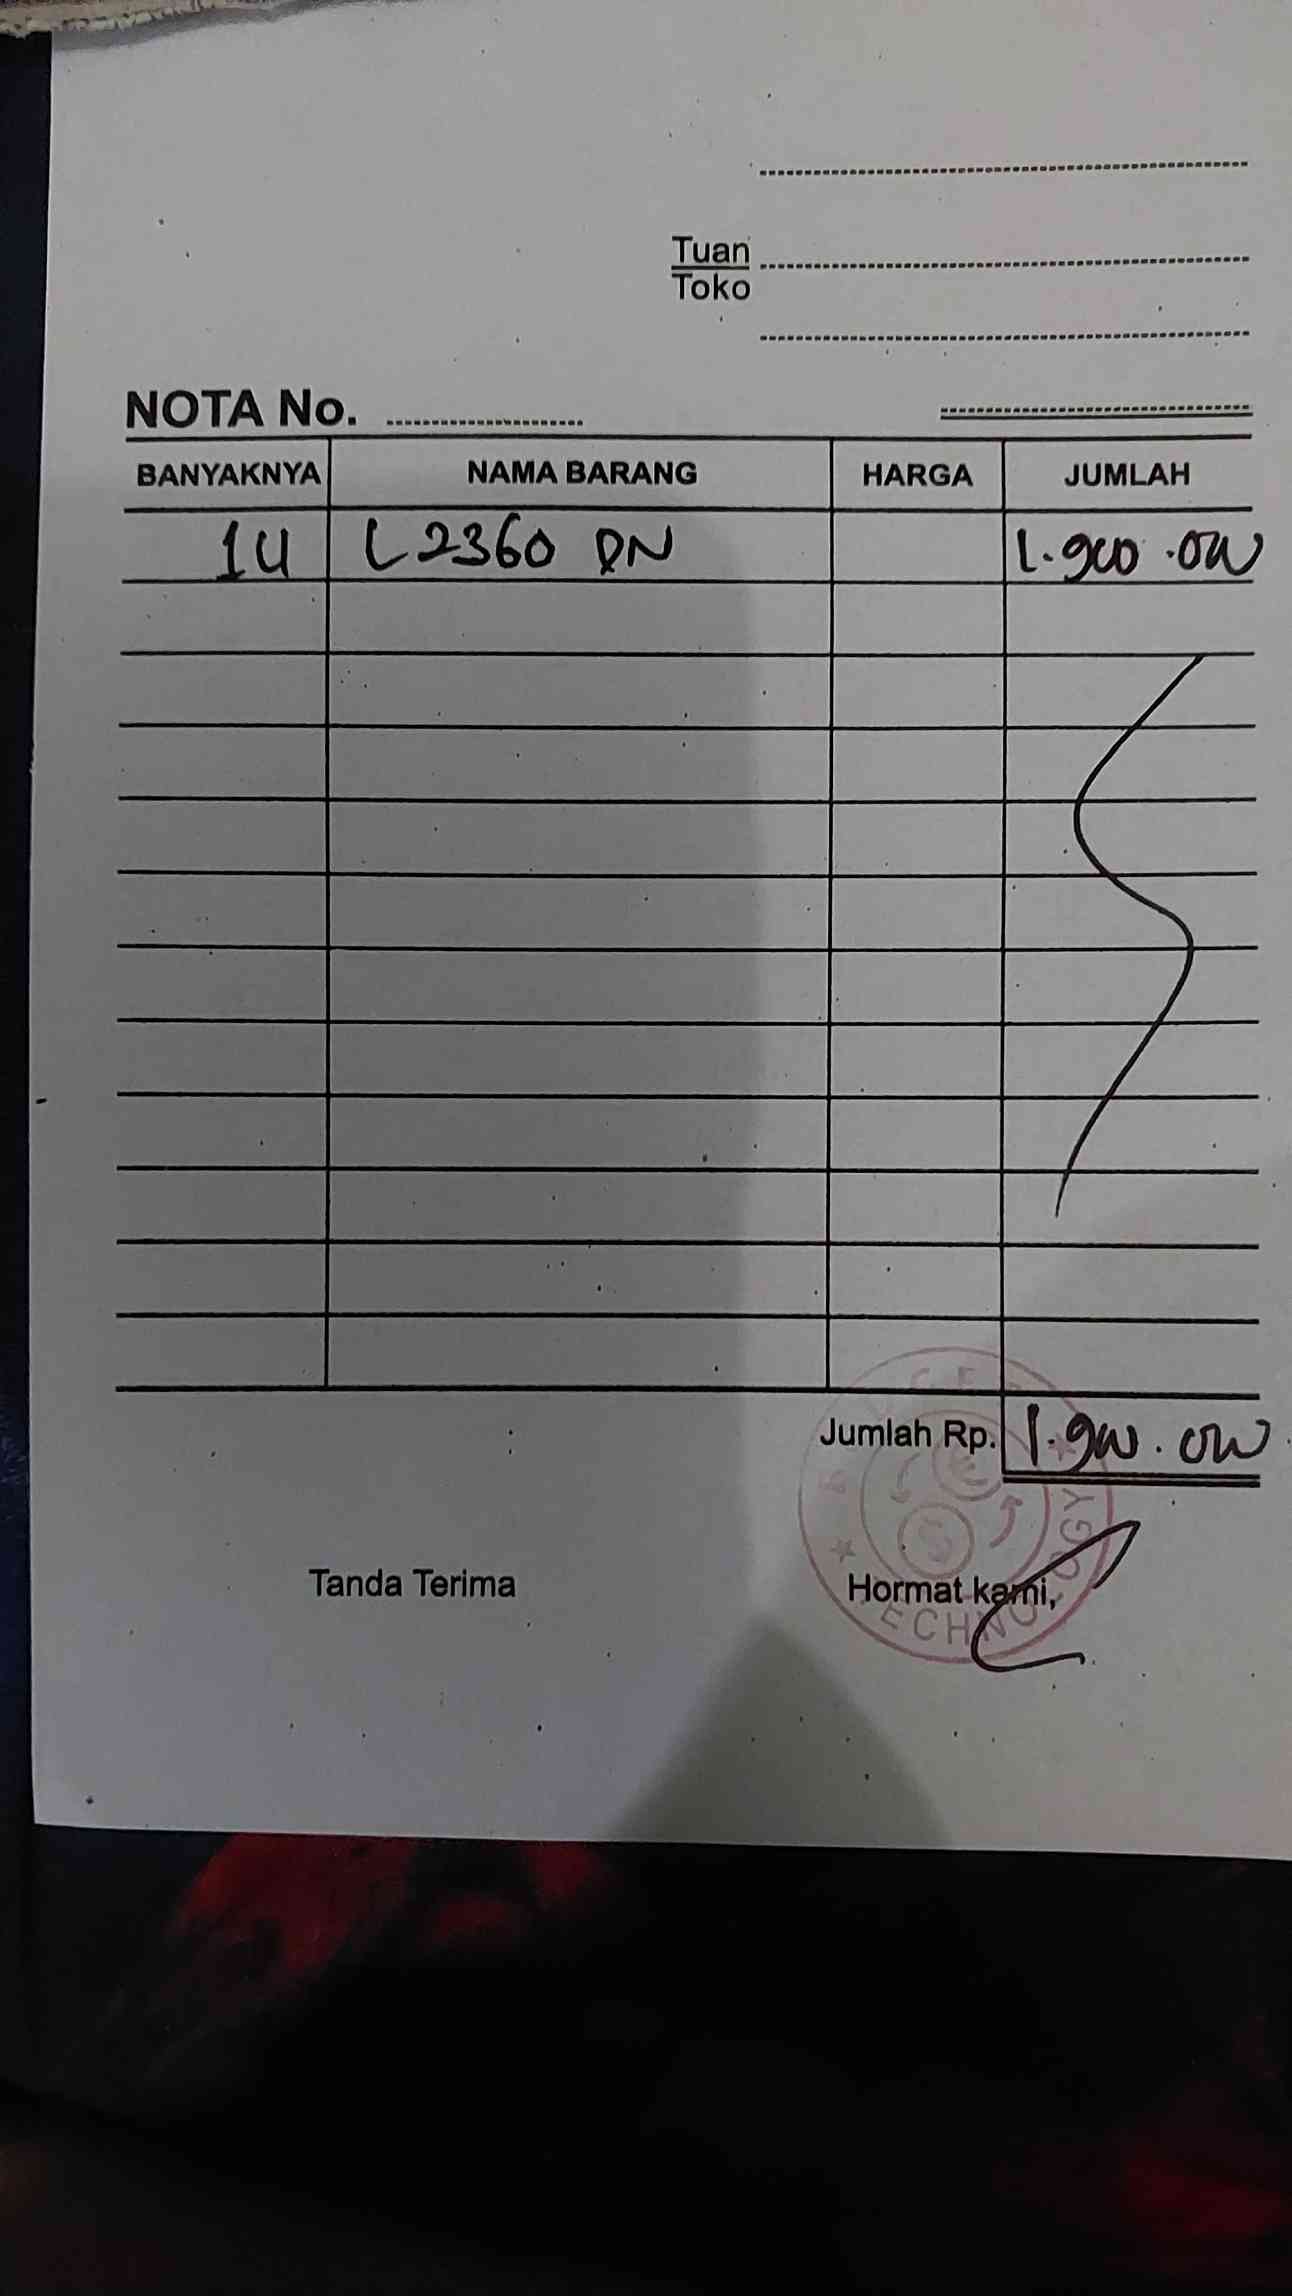 Tuan
Toko
NOTA No.
BANYAKNYA NAMA BARANG HARGA JUMLAH
1U L2360 DN 1.900.000
Jumlah Rp. 1.900.000
Tanda Terima Hormat kami,
TECHNOLOGY